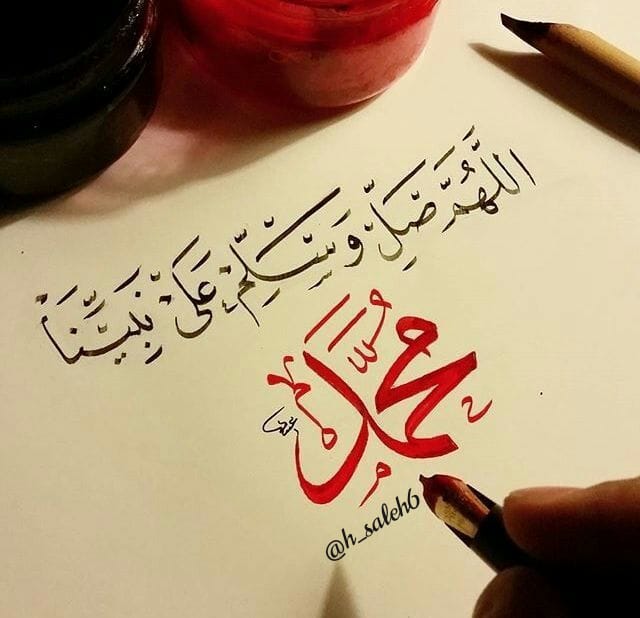 اللَّهُمَّ صَلِّ وَسَلِّمْ عَلَىٰ نَبِيِّنَا
مُحَمَّد
@h_saleh6